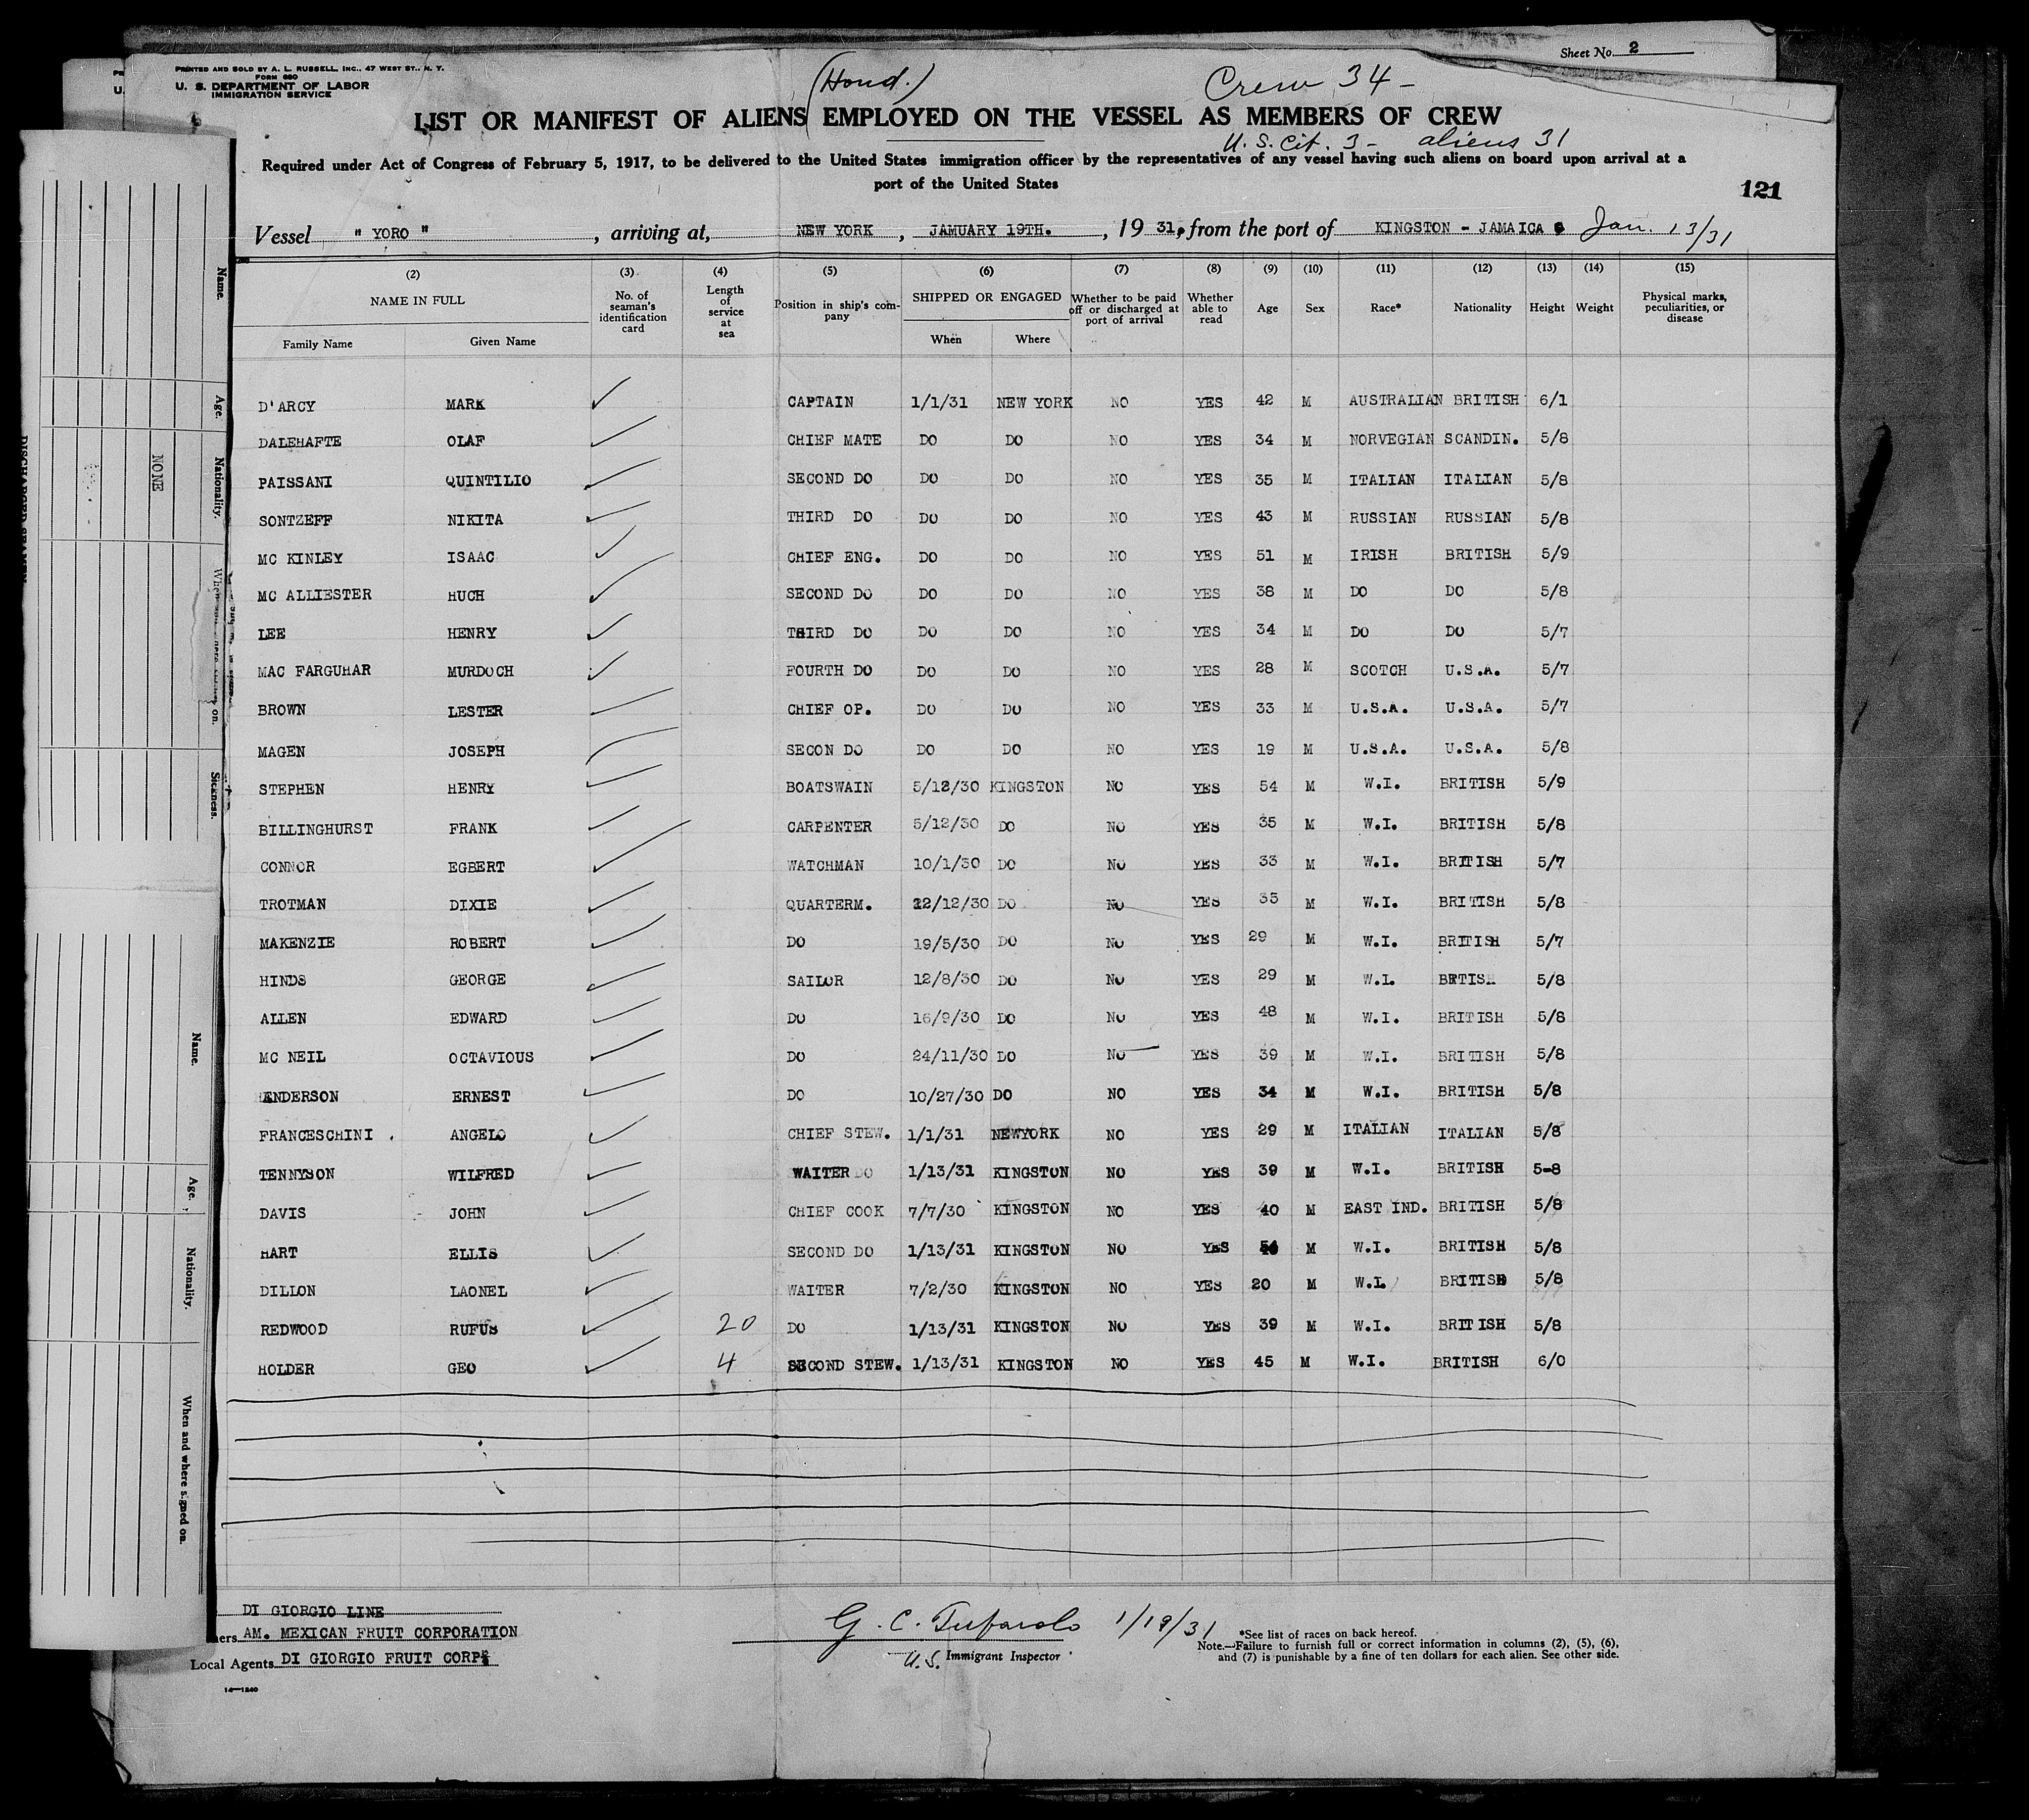 Sheet No. 2
PRINTED AND SOLD BY A. L. RUSSELL, INC., 47 WEST ST., N. Y.
FORM 680
U. S. DEPARTMENT OF LABOR
IMMIGRATION SERVICE
(Hond.)
Crew 34 -
LIST OR MANIFEST OF ALIENS EMPLOYED ON THE VESSEL AS MEMBERS OF CREW
U.S. Cit. 3 - aliens 31
Required under Act of Congress of February 5, 1917, to be delivered to the United States immigration officer by the representatives of any vessel having such aliens on board upon arrival at a
port of the United States
121
Vessel " YORO " , arriving at, NEW YORK , JAMUARY 19TH. , 19 31, from the port of KINGSTON - JAMAICA Jan. 13/31
(2) (3) (4) (5) (6) (7) (8) (9) (10) (11) (12) (13) (14) (15)
NAME IN FULL
Family Name Given Name
No. of seaman's identification card
Length of service at sea
Position in ship's company
SHIPPED OR ENGAGED
When Where
Whether to be paid off or discharged at port of arrival
Whether able to read
Age Sex Race* Nationality Height Weight
Physical marks, peculiarities, or disease
D'ARCY MARK CAPTAIN 1/1/31 NEW YORK NO YES 42 M AUSTRALIAN BRITISH 6/1
DALEHAFTE OLAF CHIEF MATE DO DO NO YES 34 M NORVEGIAN SCANDIN. 5/8
PAISSANI QUINTILIO SECOND DO DO DO NO YES 35 M ITALIAN ITALIAN 5/8
SONTZEFF NIKITA THIRD DO DO DO NO YES 43 M RUSSIAN RUSSIAN 5/8
MC KINLEY ISAAC CHIEF ENG. DO DO NO YES 51 M IRISH BRITISH 5/9
MC ALLIESTER HUCH SECOND DO DO DO NO YES 38 M DO DO 5/8
LEE HENRY THIRD DO DO DO NO YES 34 M DO DO 5/7
MAC FARGUHAR MURDOCH FOURTH DO DO DO NO YES 28 M SCOTCH U.S.A. 5/7
BROWN LESTER CHIEF OP. DO DO NO YES 33 M U.S.A. U.S.A. 5/7
MAGEN JOSEPH SECON DO DO DO NO YES 19 M U.S.A. U.S.A. 5/8
STEPHEN HENRY BOATSWAIN 5/12/30 KINGSTON NO YES 54 M W.I. BRITISH 5/9
BILLINGHURST FRANK CARPENTER 5/12/30 DO NO YES 35 M W.I. BRITISH 5/8
CONNOR EGBERT WATCHMAN 10/1/30 DO NO YES 33 M W.I. BRITISH 5/7
TROTMAN DIXIE QUARTERM. 22/12/30 DO NO YES 35 M W.I. BRITISH 5/8
MAKENZIE ROBERT DO 19/5/30 DO NO YES 29 M W.I. BRITISH 5/7
HINDS GEORGE SAILOR 12/8/30 DO NO YES 29 M W.I. 5/8
ALLEN EDWARD DO 16/9/30 DO NO YES 48 M W.I. BRITISH 5/8
MC NEIL OCTAVIOUS DO 24/11/30 DO NO YES 39 M W.I. BRITISH 5/8
ANDERSON ERNEST DO 10/27/30 DO NO YES 34 M W.I. BRITISH 5/8
FRANCESCHINI . ANGELO CHIEF STEW. 1/1/31 NEWYORK NO YES 29 M ITALIAN ITALIAN 5/8
TENNYSON WILFRED WAITER DO 1/13/31 KINGSTON NO YES 39 M W.I. BRITISH 5-8
DAVIS JOHN CHIEF COOK 7/7/30 KINGSTON NO YES 40 M EAST IND. BRITISH 5/8
HART ELLIS SECOND DO 1/13/31 KINGSTON NO YES M W.I. BRITISH 5/8
DILLON LAONEL WAITER 7/2/30 KINGSTON NO YES 20 M W.I. BRITISH 5/8
REDWOOD RUFUS 20 DO 1/13/31 KINGSTON NO YES 39 M W.I. BRITISH 5/8
HOLDER GEO 4 SECOND STEW. 1/13/31 KINGSTON NO YES 45 M W.I. BRITISH 6/0
DI GIORGIO LINE
AM. MEXICAN FRUIT CORPORATION
Local Agents DI GIORGIO FRUIT CORP
14—1240
G. C. Tufarolo 1/19/31
U.S. Immigrant Inspector
*See list of races on back hereof.
Note.—Failure to furnish full or correct information in columns (2), (5), (6),
and (7) is punishable by a fine of ten dollars for each alien. See other side.
Name.
Age.
Nationality.
NONE
on.
Sickness.
Name.
Age.
Nationality.
When and where signed on.